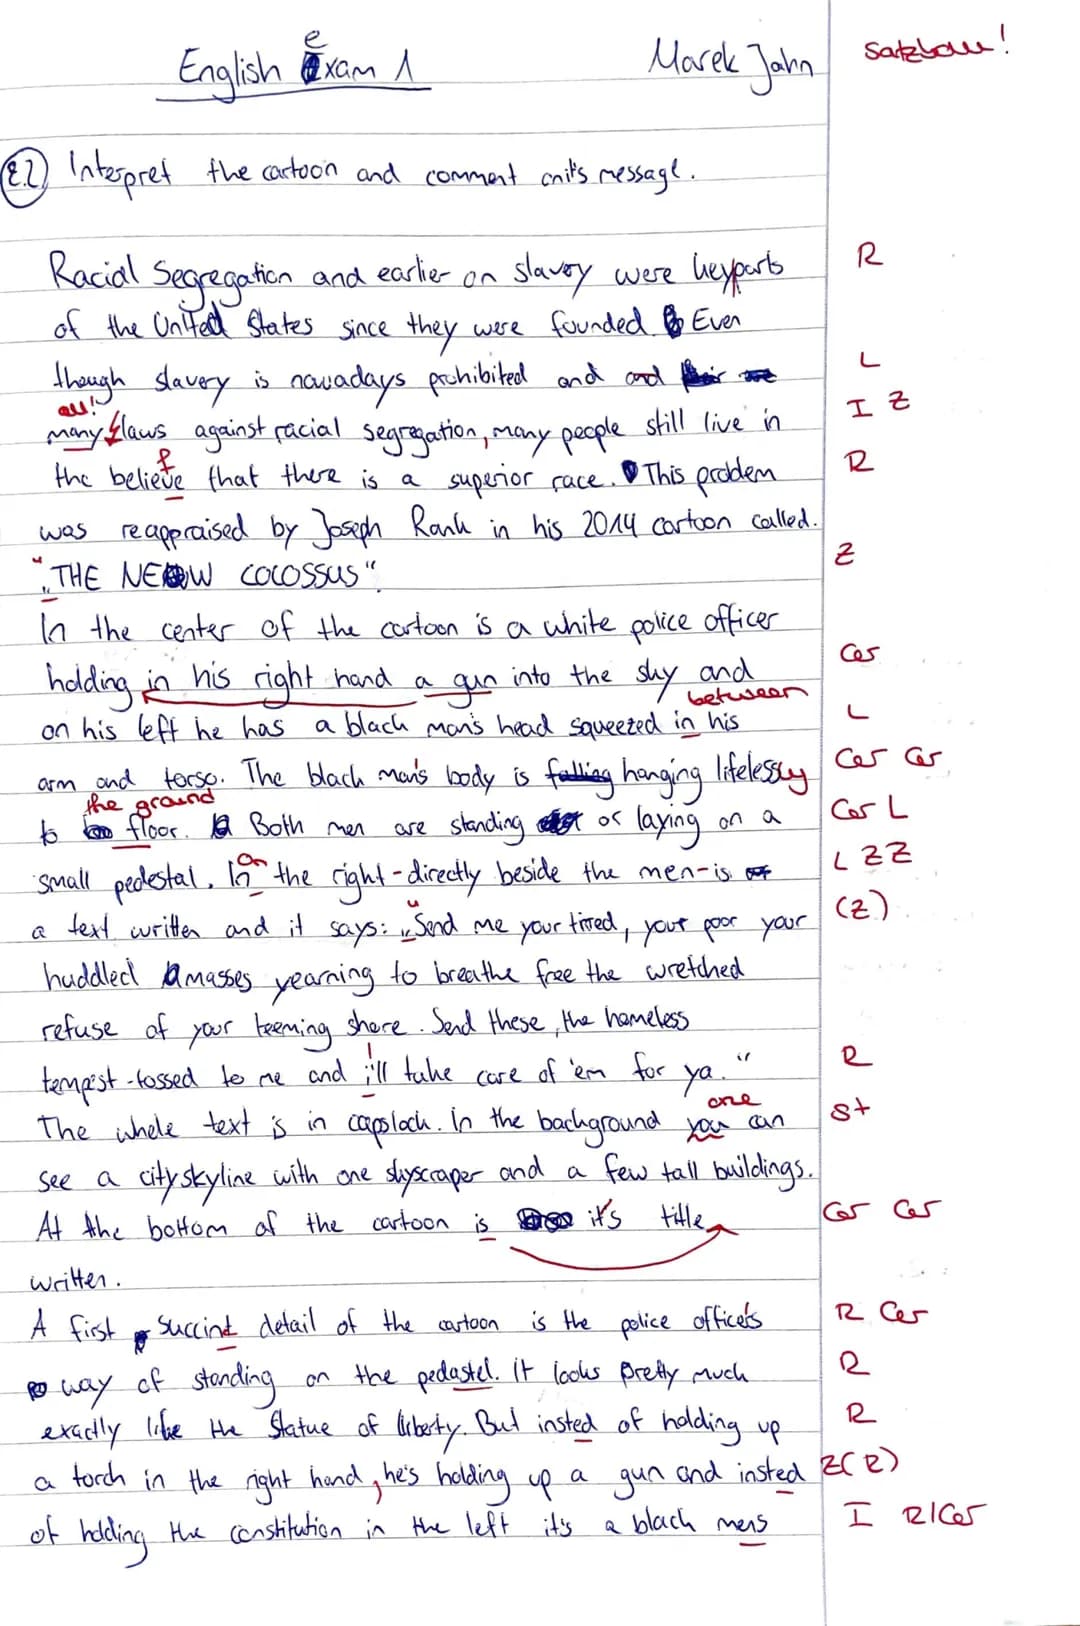 English exam 1 Marek Jahn Satzbau!
E.2) Interpret the cartoon and comment on it's message.
Racial Segregation and earlier on slavery were keyparts R
of the United States since they were founded Even
though slavery is nowadays prohibited and and L
all!
many laws against racial segregation, many people still live in I Z
f
the believe that there is a superior race. This problem R
was reappraised by Joseph Rank in his 2014 cartoon called.
"„THE NEW COLOSSUS" Z
In the center of the cartoon is a white police officer
holding in his right hand a gun into the sky and Ger
between
on his left he has a black man's head squeezed in his L
arm and torso. The black man's body is falling hanging lifelessly Ger Ger
the ground
to floor. Both men are standing or laying on a Ger L
On
small pedestal. In the right-directly beside the men-is L Z Z
a text written and it says: „Send me your tired, your poor your (Z)
huddled masses yearning to breathe free the wretched
refuse of your teeming shore. Send these, the homeless
tempest-tossed to me and i'll take care of 'em for ya." R
one
The whole text is in capslock. In the background you can St
see a city skyline with one skyscraper and a few tall buildings.
At the bottom of the cartoon is it's title Ger Ger
written.
A first succint detail of the cartoon is the police officers R Ger
way of standing on the pedastel. It looks pretty much R
exactly like the Statue of liberty. But insted of holding up R
a torch in the right hand, he's holding up a gun and insted Z(R)
of holding the constitution in the left it's a black mens I R/Ger